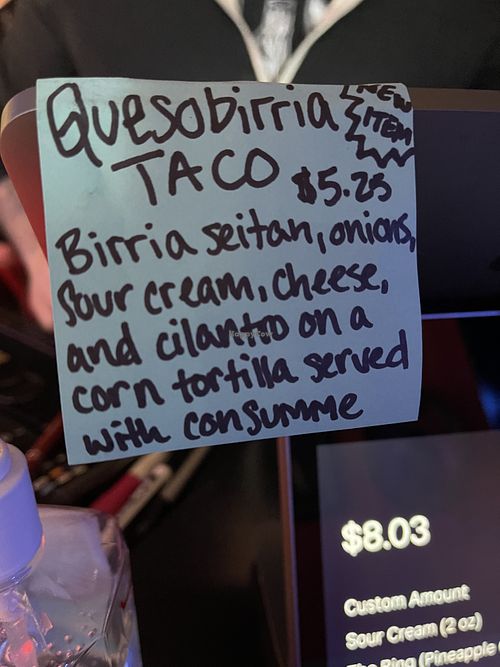 Quesobirria
NEW
ITEM
TACO $5.25
Birria seitan, onions,
Sour cream, cheese,
and cilantro on a
corn tortilla served
with consumme
HappyCow
$8.03
Custom Amount
Sour Cream (2 oz)
(Pineapple